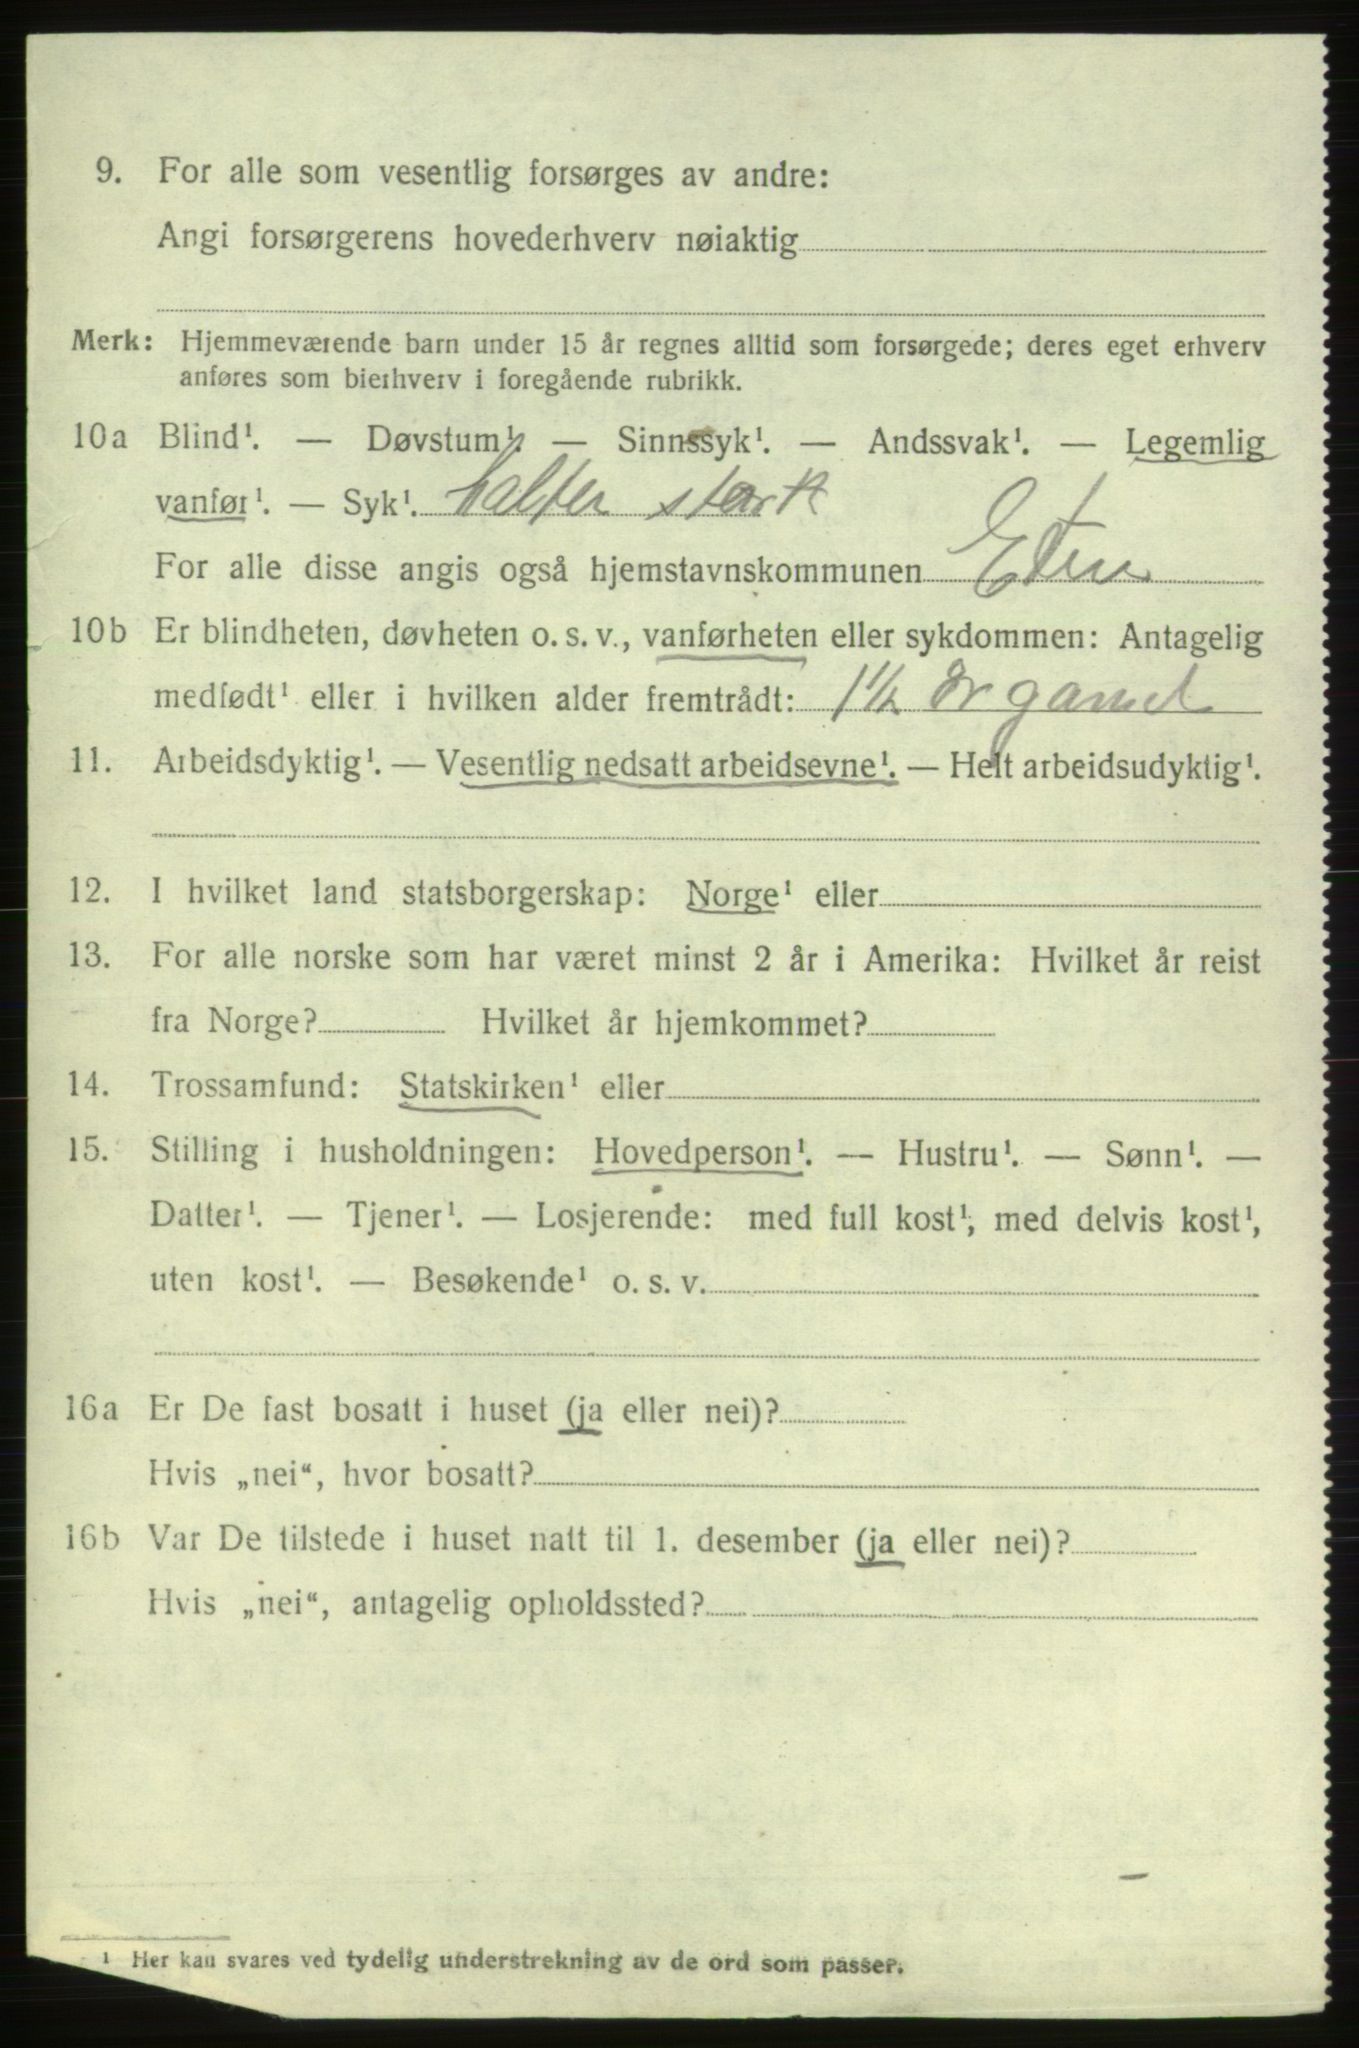 9. For alle som vesentlig forsørges av andre:
Angi forsørgerens hovederhverv nøiaktig
Merk: Hjemmeværende barn under 15 år regnes alltid som forsørgede; deres eget erhverv
anføres som bierhverv i foregående rubrikk.
10a Blind¹. — Døvstum¹. — Sinnssyk¹. — Andssvak¹. — Legemlig
vanfør¹. — Syk¹. halter stærk
For alle disse angis også hjemstavnskommunen Etne
10b Er blindheten, døvheten o. s. v., vanførheten eller sykdommen: Antagelig
medfødt¹ eller i hvilken alder fremtrådt: 1½ år gamel
11. Arbeidsdyktig¹. — Vesentlig nedsatt arbeidsevne¹. — Helt arbeidsudyktig¹.
12. I hvilket land statsborgerskap: Norge¹ eller
13. For alle norske som har været minst 2 år i Amerika: Hvilket år reist
fra Norge? Hvilket år hjemkommet?
14. Trossamfund: Statskirken¹ eller
15. Stilling i husholdningen: Hovedperson¹. — Hustru¹. — Sønn¹. —
Datter¹. — Tjener¹. — Losjerende: med full kost¹, med delvis kost¹,
uten kost¹. — Besøkende¹ o. s. v.
16a Er De fast bosatt i huset (ja eller nei)?
Hvis „nei“, hvor bosatt?
16b Var De tilstede i huset natt til 1. desember (ja eller nei)?
Hvis „nei“, antagelig opholdssted?
¹ Her kan svares ved tydelig understrekning av de ord som passer.